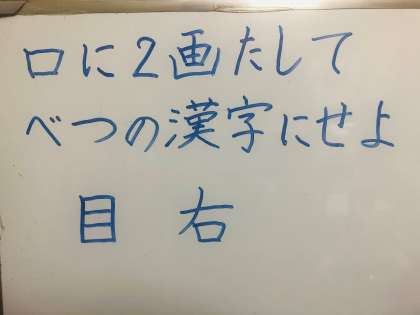 口に2画たして
べつの漢字にせよ
目 右